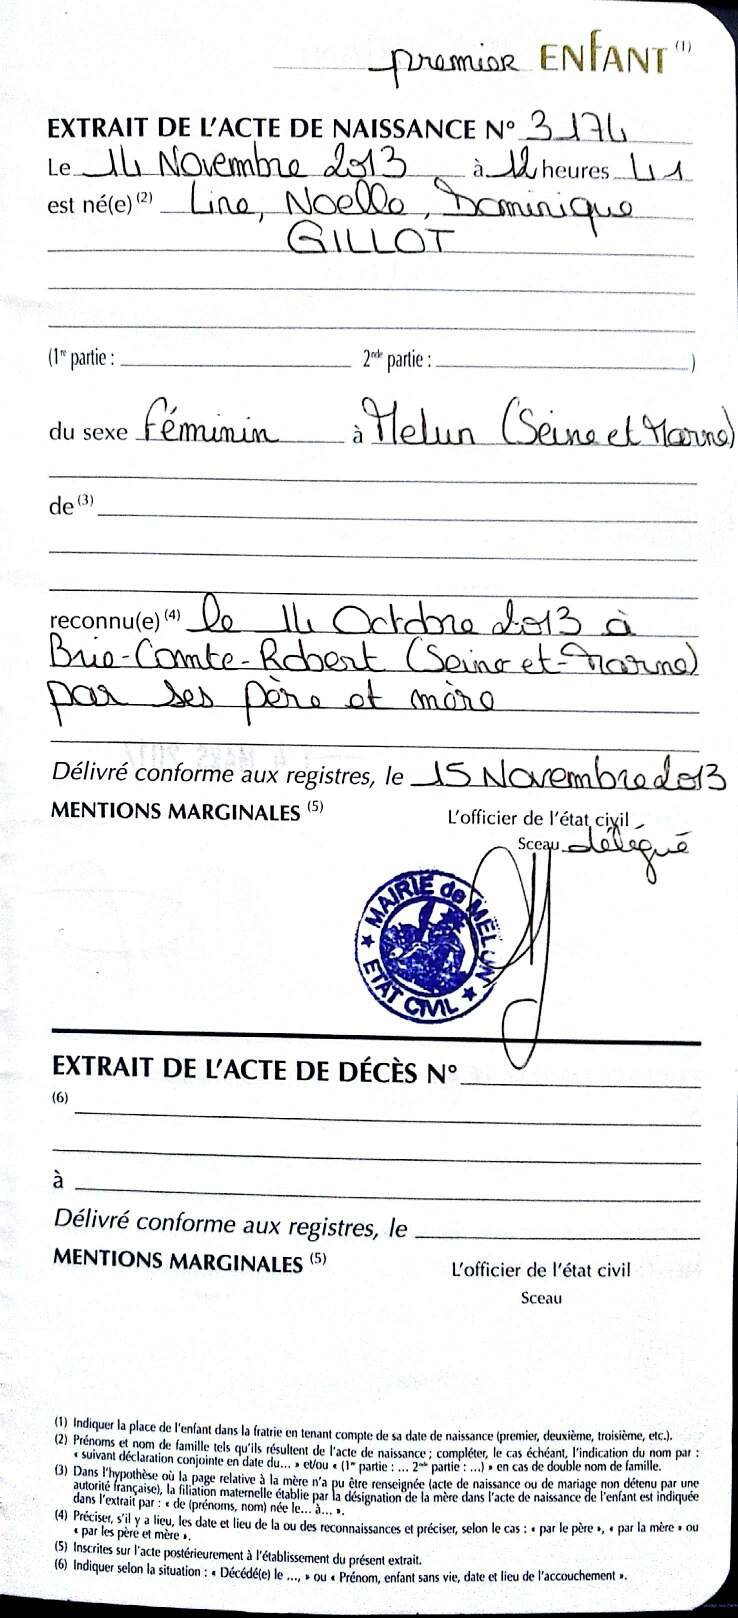 premier ENFANT (1)
EXTRAIT DE L'ACTE DE NAISSANCE N° 3174
Le 14 Novembre 2013 à 12 heures 41
est né(e) (2) Line, Noelle, Dominique
GILLOT
(1re partie : 2nde partie : )
du sexe féminin à Melun (Seine et Marne)
de (3)
reconnu(e) (4) le 14 Octobre 2013 à
Brie-Comte-Robert (Seine et-Marne)
par ses père et mère
Délivré conforme aux registres, le 15 Novembre 2013
MENTIONS MARGINALES (5) L'officier de l'état civil
Sceau délégué
MAIRIE de MELUN
ETAT CIVIL
EXTRAIT DE L'ACTE DE DÉCÈS N°
(6)
à
Délivré conforme aux registres, le
MENTIONS MARGINALES (5) L'officier de l'état civil
Sceau
(1) Indiquer la place de l'enfant dans la fratrie en tenant compte de sa date de naissance (premier, deuxième, troisième, etc.).
(2) Prénoms et nom de famille tels qu'ils résultent de l'acte de naissance ; compléter, le cas échéant, l'indication du nom par :
« suivant déclaration conjointe en date du... » et/ou « (1re partie : ... 2nde partie : ...) » en cas de double nom de famille.
(3) Dans l'hypothèse où la page relative à la mère n'a pu être renseignée (acte de naissance ou de mariage non détenu par une
autorité française), la filiation maternelle établie par la désignation de la mère dans l'acte de naissance de l'enfant est indiquée
dans l'extrait par : « de (prénoms, nom) née le... à... ».
(4) Préciser, s'il y a lieu, les date et lieu de la ou des reconnaissances et préciser, selon le cas : « par le père », « par la mère » ou
« par les père et mère ».
(5) Inscrites sur l'acte postérieurement à l'établissement du présent extrait.
(6) Indiquer selon la situation : « Décédé(e) le ..., » ou « Prénom, enfant sans vie, date et lieu de l'accouchement ».